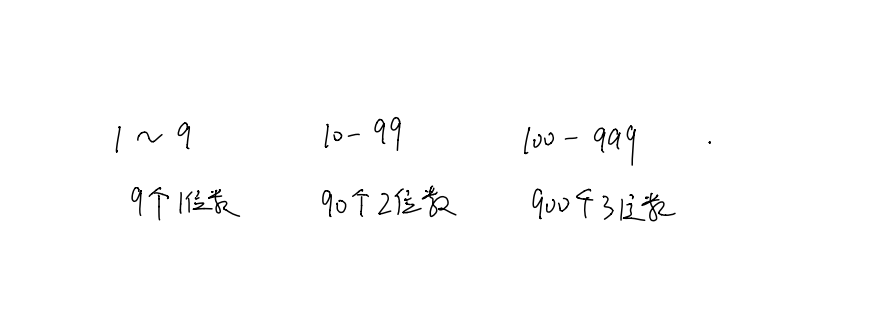 1～9 10-99 100-999 .
9个1位数 90个2位数 900个3位数